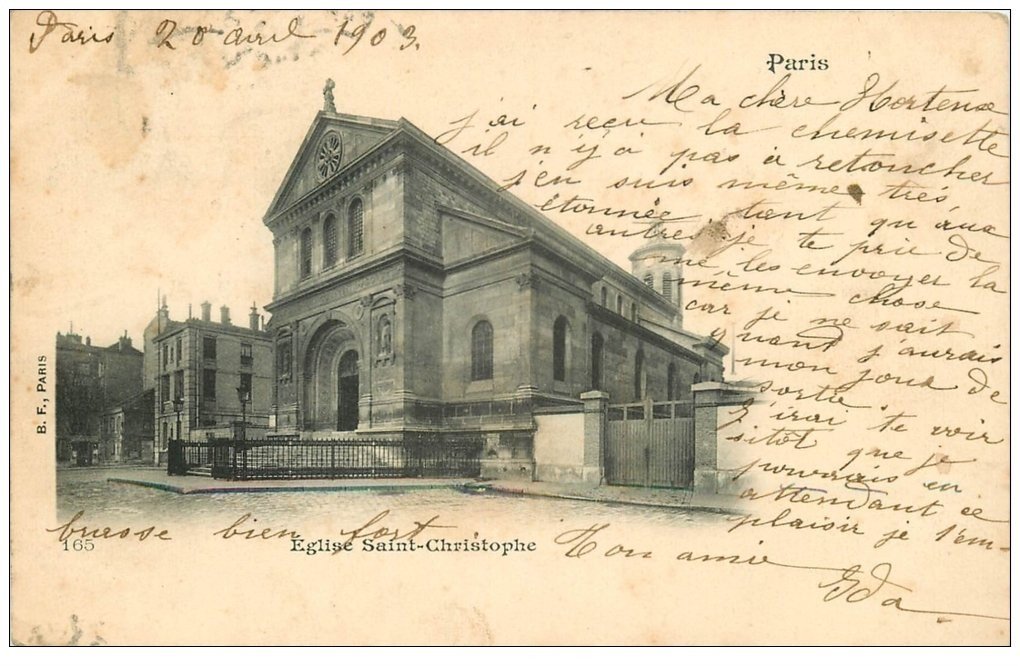 Paris 20 avril 1903.
Paris
Ma chère Hortense
j'ai reçu la chemisette
il n'y a pas à retoucher
j'en suis même très
étonnée, tant qu'aux
autre je te prie de
me les envoyer la
même chose
car je ne sait
quand j'aurais
mon jour de
sortie.
J'irai te voir
sitôt que je
pourrais en
attendant ce
plaisir je t'em-
brasse bien fort
Mon amie
Eda
165
Eglise Saint-Christophe
B. F., PARIS